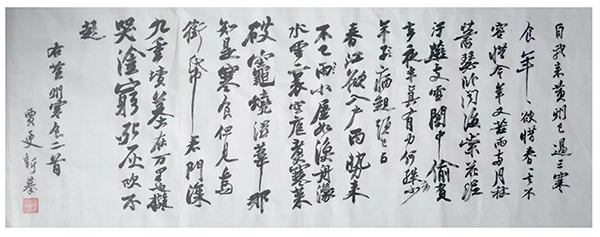 自我来黄州已過三寒
食年々欲惜春々去不
容惜今年又苦雨兩月秋
蕭瑟卧聞海棠花泥
汙燕支雪闇中偷負
去夜半真有力何殊少
年子病起頭已白
春江欲入户雨勢来
不已雨小屋如漁舟濛々
水雲裏空庖煮寒菜
破竈燒濕葦那
知是寒食但見烏
銜帋君門深
九重墳墓在万里也擬
哭塗窮死灰吹不
起
右黄州寒食二首
賈更新摹